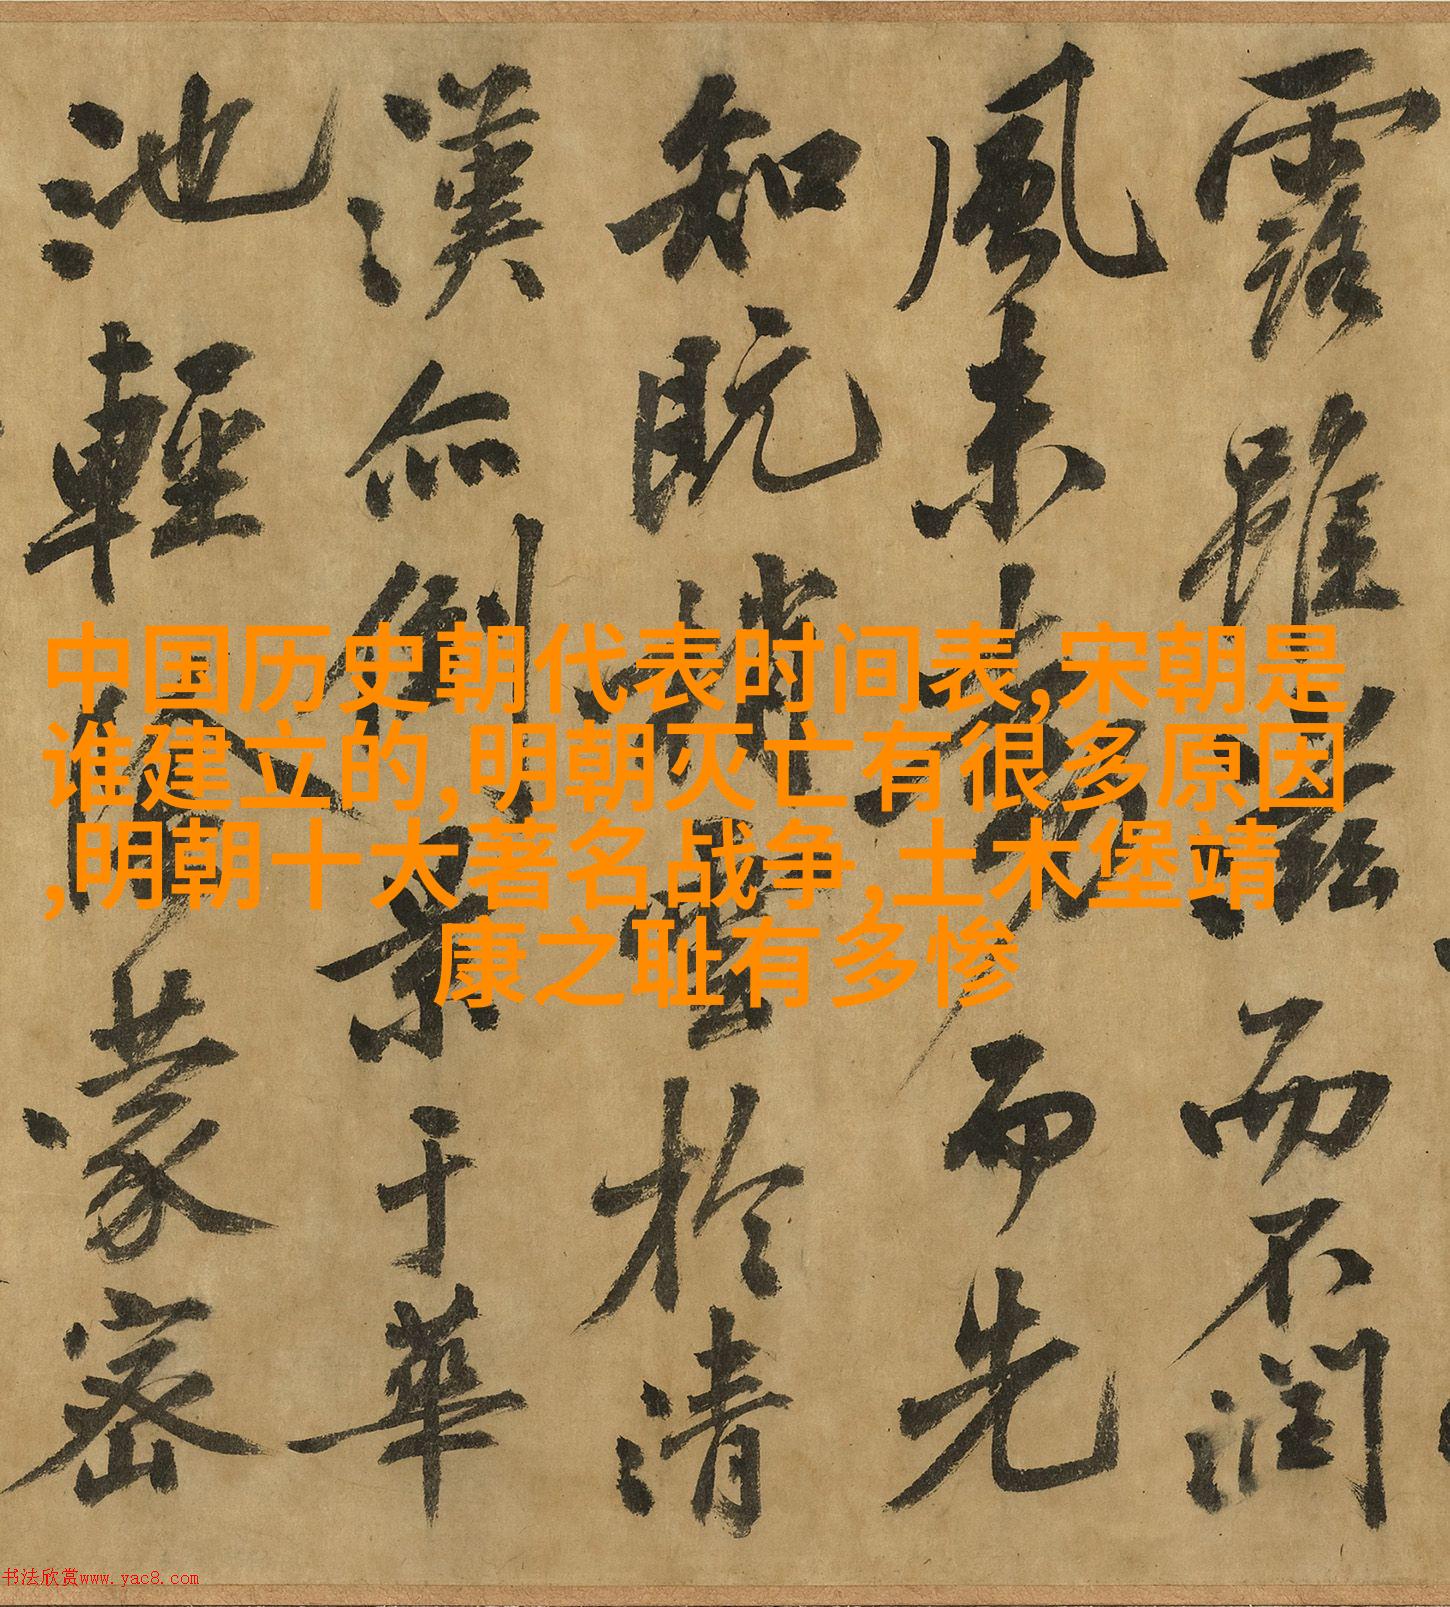 露雖滋而不潤
風未動而先
知既消雲於清
漢亦倒景于華
池輕陰蒙密
中国历史朝代表时间表,宋朝是
谁建立的,明朝灭亡有很多原因
,明朝十大著名战争,土木堡靖
康之耻有多惨
书法欣赏www.yac8.com